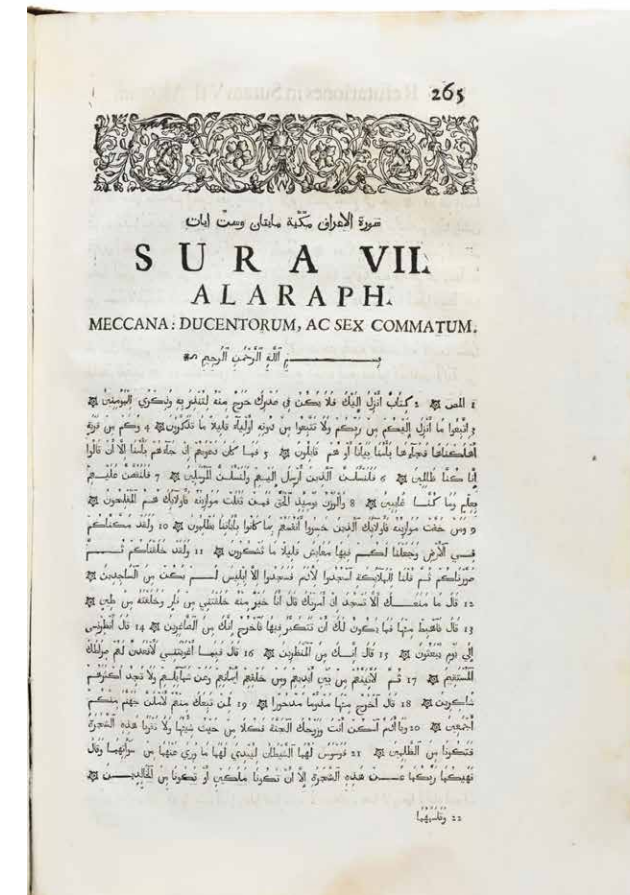 265
سورة الاعراف مكّية مايتان وستّ ايات
SURA VII.
ALARAPH.
MECCANA: DUCENTORUM, AC SEX COMMATUM.
بسم اللّه الرّحمن الرّحيم
1 المص 2 كتاب أنزل إليك فلا يكن في صدرك حرج منه لتنذر به وذكري للمومنين
3 اتبعوا ما أنزل إليكم من ربكم ولا تتبعوا من دونه أولياء قليلا ما تذكرون 4 وكم من قرية
أهلكناها فجاءها بأسنا بياتا أو هم قايلون 5 فما كان دعويهم إذ جاءهم بأسنا إلا أن قالوا
إنا كنا ظالمين 6 فلنسئلن الذين أرسل إليهم ولنسئلن المرسلين 7 فلنقصن عليهم
بعلم وما كنا غايبين 8 والوزن يوميذ الحق فمن ثقلت موازينه فأولايك هم المفلحون
9 ومن خفت موازينه فأولايك الذين خسروا أنفسهم بما كانوا بأياتنا يظلمون 10 ولقد مكناكم
في الأرض وجعلنا لكم فيها معايش قليلا ما تشكرون 11 ولقد خلقناكم ثم
صورناكم ثم قلنا للملايكة اسجدوا لأدم فسجدوا إلا إبليس لم يكن من الساجدين
12 قال ما منعك ألا تسجد إذ أمرتك قال أنا خير منه خلقتني من نار وخلقته من طين
13 قال فاهبط منها فما يكون لك أن تتكبر فيها فاخرج إنك من الصاغرين 14 قال أنظرني
إلي يوم يبعثون 15 قال إنك من المنظرين 16 قال فبما أغويتني لأقعدن لهم صراطك
المستقيم 17 ثم لأتينهم من بين أيديهم ومن خلفهم أيمانهم وعن شمايلهم ولا تجد أكثرهم
شاكرين 18 قال اخرج منها مذوما مدحورا 19 لمن تبعك منهم لأملئن جهنم منكم
أجمعين 20 ويا أدم اسكن أنت وزوجك الجنة فكلا من حيث شيتما ولا تقربا هذه الشجرة
فتكونا من الظالمين 21 فوسوس لهما الشيطان ليبدي لهما ما وري عنهما من سواتهما وقال
نهيكما ربكما عن هذه الشجرة إلا أن تكونا ملكين أو تكونا من الخالدين
22 وقاسمهما